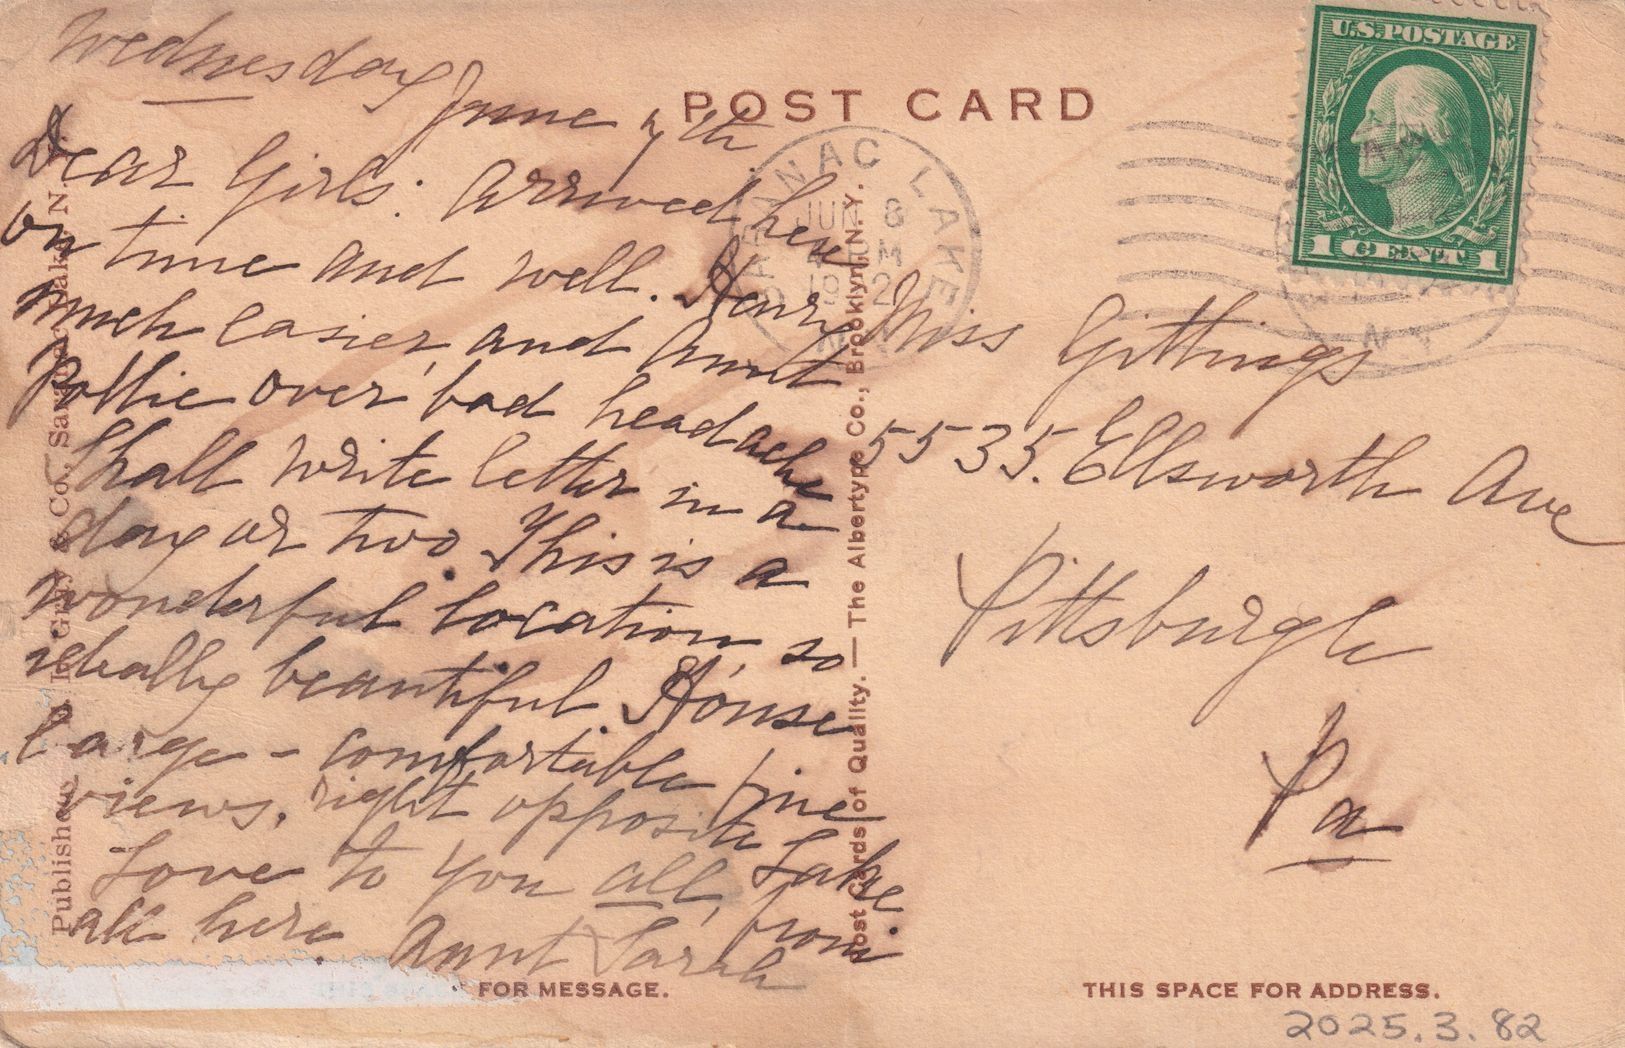 POST CARD
U.S. POSTAGE
1 CENT 1
SARANAC LAKE
JUN 8
PM
N.Y.
Wednesday
June 7th
Dear Girls: Arrived here
on time and well. Henry
much easier and Aunt
Pollie over bad headache
Shall write letter in a
day or two. This is a
wonderful location so
ideally beautiful. House
large - comfortable fine
views, right opposite Lake
Love to you all, from
all here. Aunt Sarah
Miss Gittings
5535. Ellsworth Ave
Pittsburgh
Pa
Post Cards of Quality. — The Albertype Co., Brooklyn, N. Y.
Published Gray & Co. Saranac Lake, N.
FOR MESSAGE.
THIS SPACE FOR ADDRESS.
2025.3.82